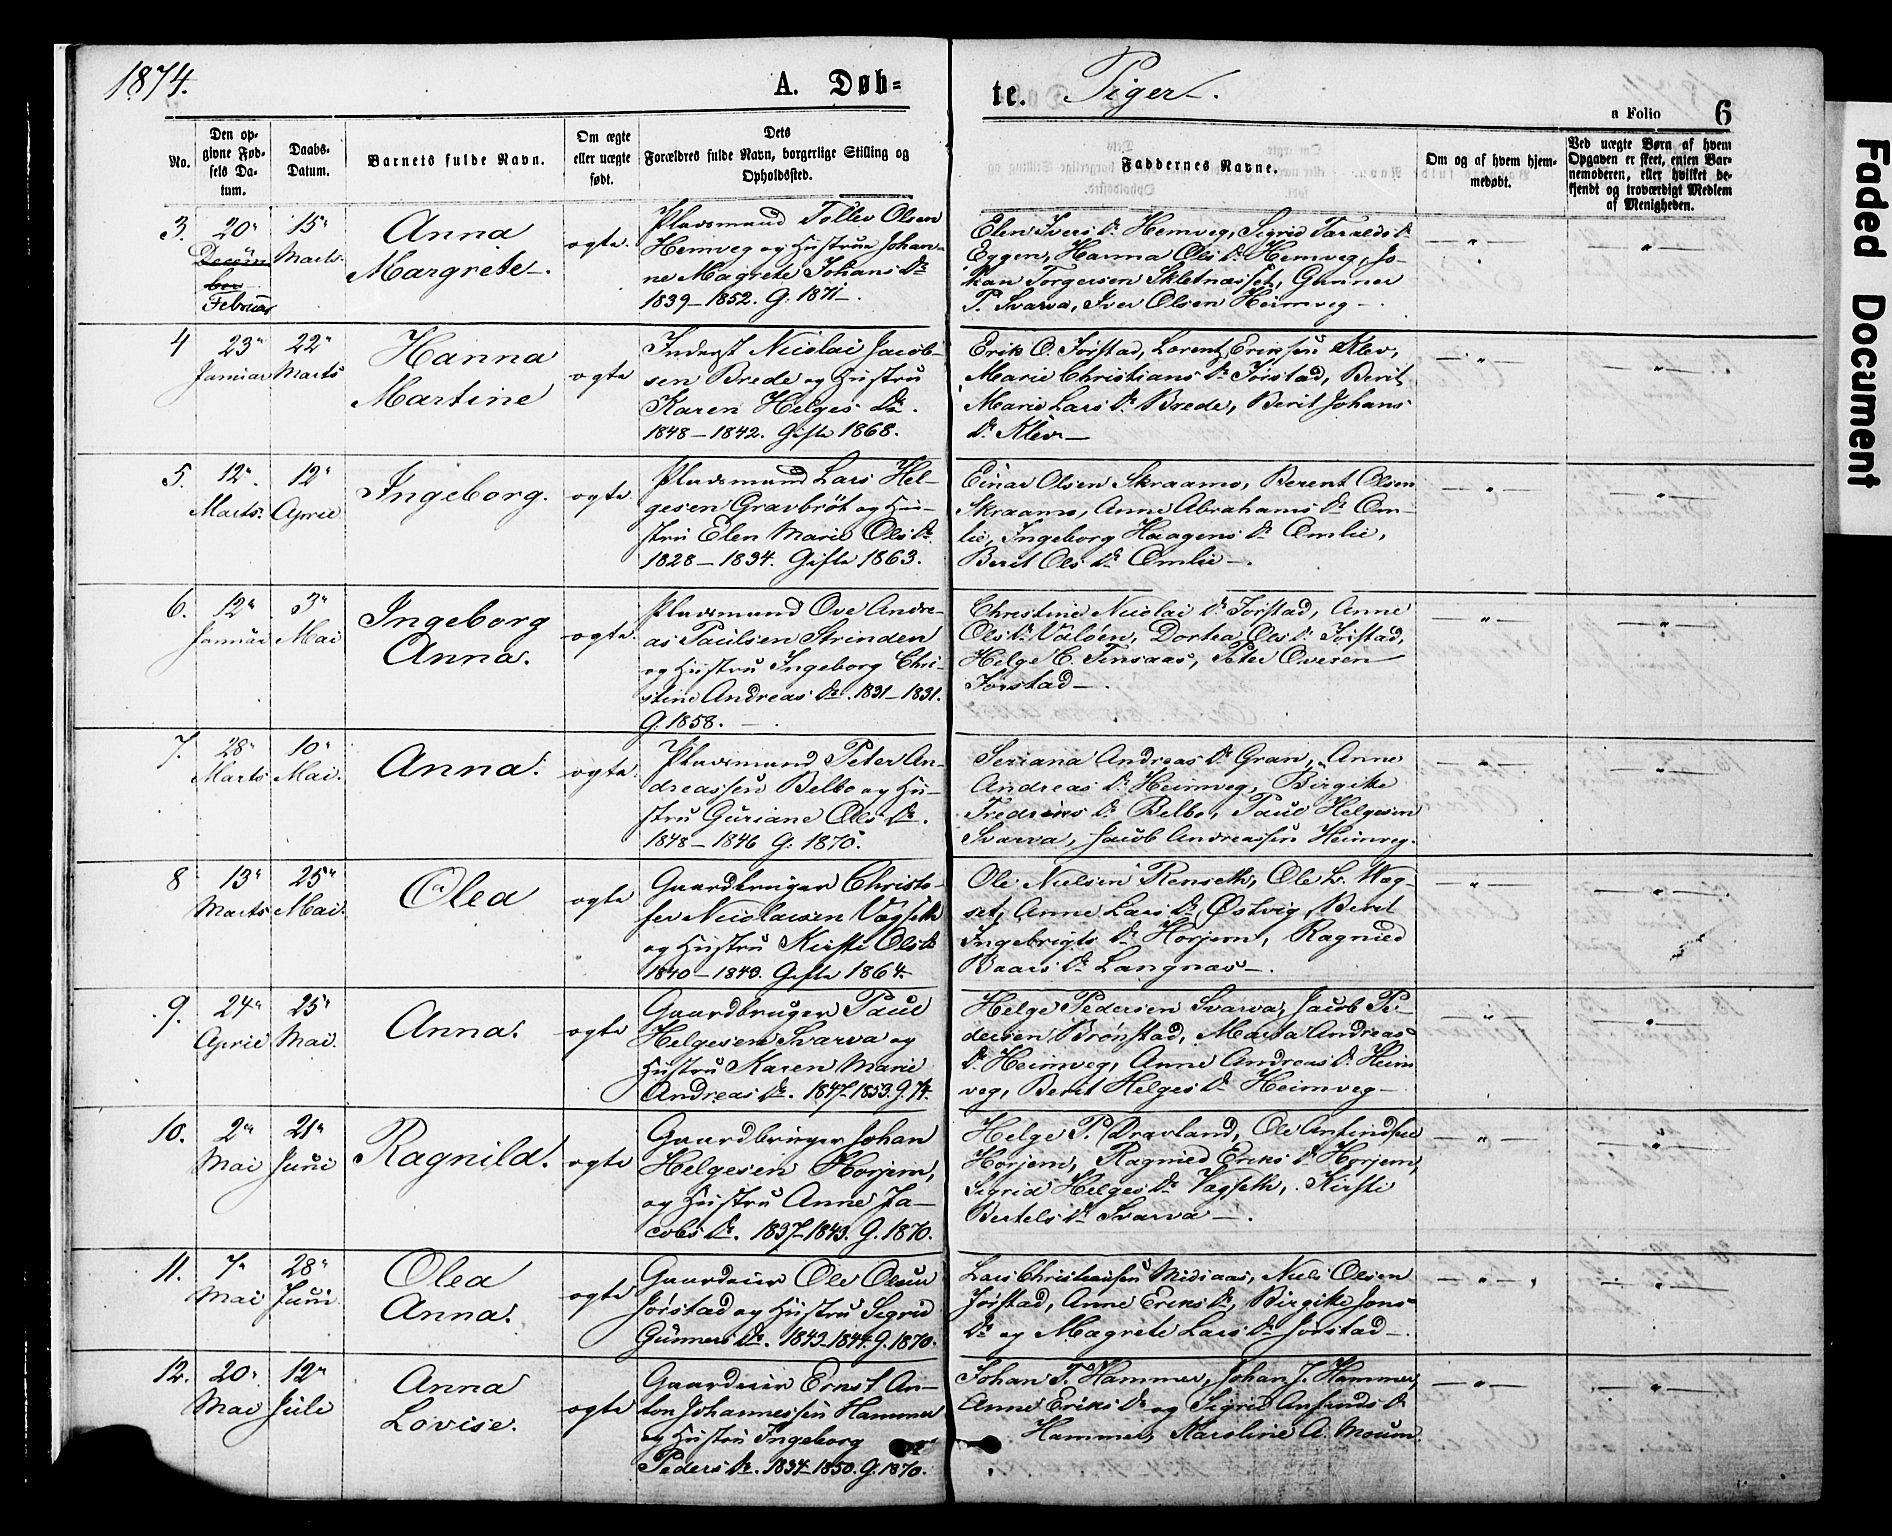 1874.
A. Døb=
te. Piger.
a Folio 6
Faded Document
No.
Den op-
givne Fød-
sels Da-
tum.
Daabs-
Datum.
Barnets fulde Navn.
Om ægte
eller uægte
født.
Dets
Forældres fulde Navn, borgerlige Stilling og
Opholdssted.
Faddernes Navne.
Om og af hvem hjem-
medøbt.
Ved uægte Børn af hvem
Opgaven er skeet, enten Bar-
nemoderen, eller hvilket be-
kjendt og troværdigt Medlem
af Menigheden.
3.
20
Decem
ber
Februar
15
Marts.
Anna
Margrete.
ægte.
Pladsmand Tollev Olsen
Hemveg og Hustrue Johan-
ne Magrete Johans Dr
1839-1852. G. 1871.
Elen Ivers Dr Hemveg, Sigrid Taralds Dr
Eggen, Hanna Ols Dr Hemveg, Jo-
han Torgersen Skletnæsset, Gunner
P. Svarva, Iver Olsen Heimveg.
4
23
Januar
22
Marts
Hanna
Martine
ægte
Inderst Nicolai Jacob-
sen Brede og Hustru
Karen Helges Dr.
1848-1842. Gifte 1868.
Erik O. Jørstad, Lorentz Eriksen Klev,
Marie Christians Dr Jørstad, Berit
Marie Lars Dr Brede, Berit Johans
Dr Klev
5.
12
Marts.
12
April
Ingeborg.
ægte.
Pladsmand Lars Hel-
gesen Gravbröt og Hu-
stru Elen Marie Ols Dr
1828-1834. Gifte 1863.
Einar Olsen Skraamo, Berent Olsen
Skraamo, Anne Abrahams Dr Om-
lie, Ingeborg Haagens Dr Omlie,
Berit Ols Dr Omlie.
6.
12
Januar
3
Mai
Ingeborg
Anna.
ægte.
Pladsmand Ove Andre-
as Paulsen Strinden
og Hustru Ingeborg Chri-
stine Andreas Dr. 1831-1831.
G. 1858.
Christine Nicolai Dr Jørstad, Anne
Ols Dr Valøen, Dortea Ols Dr Jørstad,
Helge C. Finsaas, Peter Ovesen
Jørstad.
7.
28
Marts
10
Mai.
Anna.
ægte.
Pladsmand Peter An-
dreassen Belbo og Hu-
stru Guriane Ols Dr.
1848-1846 G. 1870.
Seriana Andreas Dr Gran, Anne
Andreas Dr Heimveg, Birgitte
Fredriks Dr Belbo, Paul Helgesen
Svarva, Jacob Andreassen Heimveg.
8
13
Marts
25
Mai.
Olea
ægte
Gaardbruger Christo-
fer Nicolaisen Vagseth
og Hustru Kirsti Ols Dr
1840-1840. Gifte 1864.
Ole Nielsen Renseth, Ole L. Wag-
set, Anne Lars Dr Østvig, Berit
Ingebrigts Dr Horjem, Ragnied
Baars Dr Langnæs.
9.
24
April
25
Mai.
Anna.
ægte
Gaardbruger Paul
Helgesen Svarva og
Hustru Karen Marie
Andreas Dr. 1847-1853. G. 74.
Helge Pedersen Svarva, Jacob Pe-
dersen Brønstad, Marta Andreas
Dr Heimveg, Anne Andreas Dr Heim
veg, Berit Helges Dr Heimveg
10.
2
Mai
21
Juni
Ragnild.
ægte
Gaardbruger Johan
Helgesen Horjem,
og Hustru Anne Ja-
cobs Dr. 1837-1843. G. 1870.
Helge P. Dravland, Ole Anfindsen
Horjem, Ragnied Eriks Dr Horjem,
Sigrid Helges Dr Vagseth, Kirsti
Bertels Dr Svarva.
11.
7
Mai
28
Juni
Olea
Anna.
ægte
Gaardeier Ole Olsen
Jørstad og Hustru Sigrid
Gunners Dr. 1843-1844. G. 1870.
Lars Christensen Midjaas, Niels Olsen
Jørstad, Anne Eriks Dr, Birgitte Jons
Dr og Magrete Lars Dr Jørstad.
12.
20
Mai
12
Juli
Anna
Lovise.
ægte
Gaardeier Ernst An-
ton Johannessen Hammer
og Hustru Ingeborg
Peders Dr. 1834-1850. G. 1870.
Johan T. Hammer, Johan J. Hammer,
Anne Eriks Dr og Sigrid Anfinds Dr
Hammer, Karoline A. Moum.